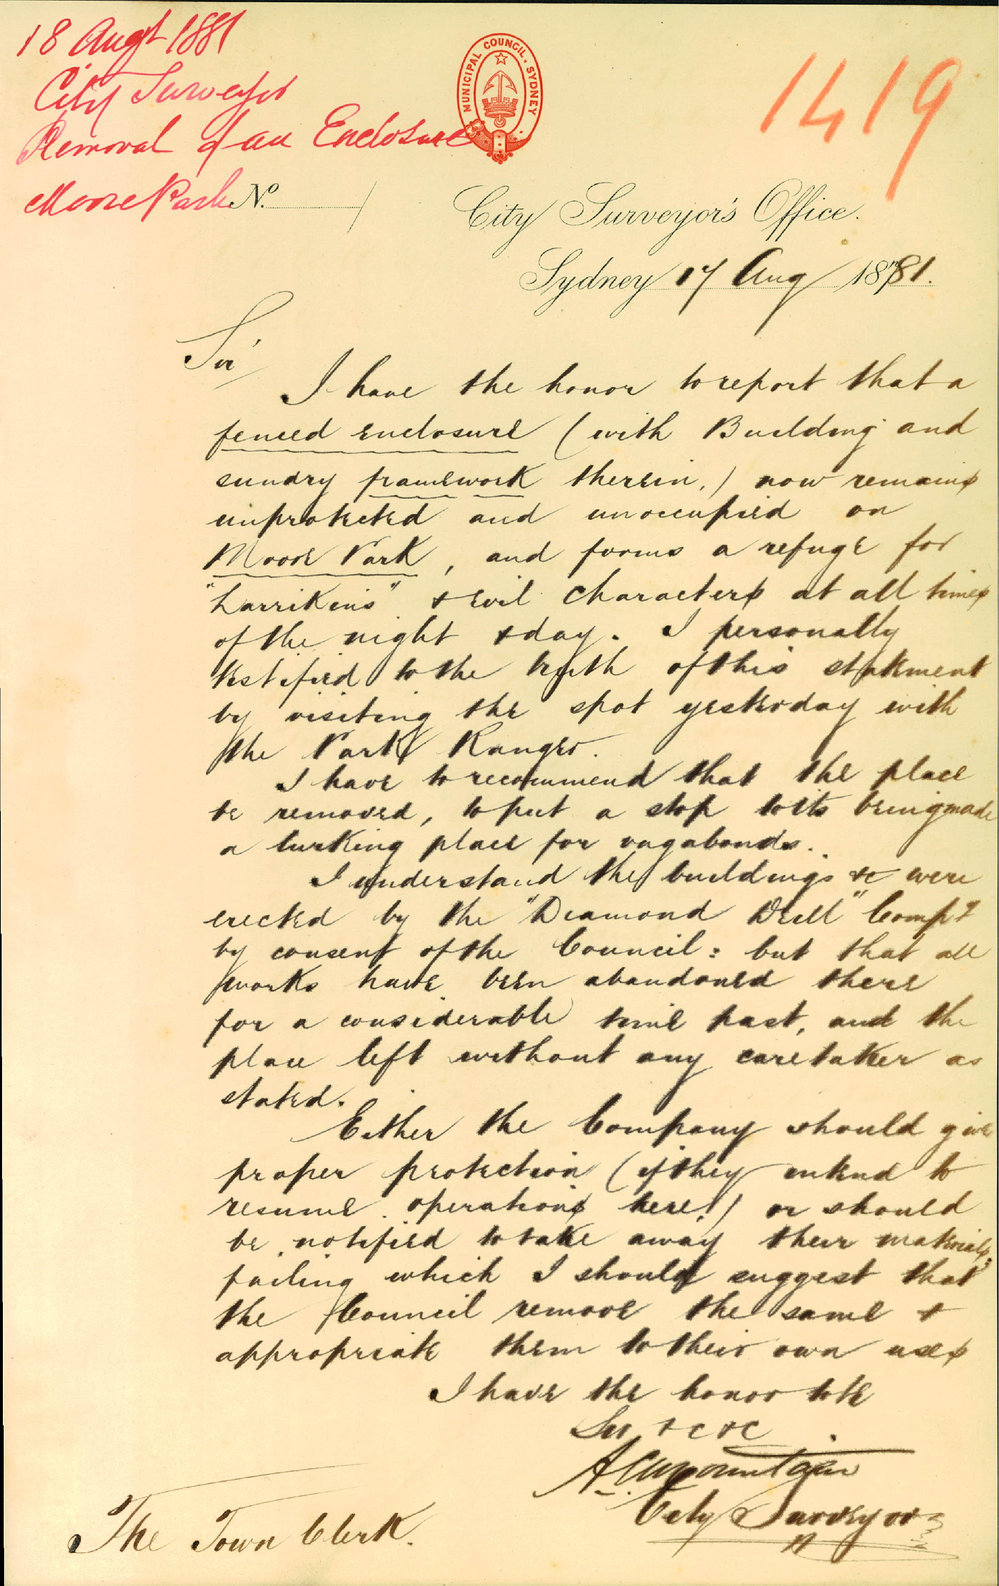 18 Augt 1881
City Surveyor
Removal of an Enclosure
Moore Park
1419
MUNICIPAL COUNCIL. SYDNEY
No.
City Surveyor's Office.
Sydney 17 Aug 1881.
Sir
I have the honor to report that a
fenced enclosure (with Building and
sundry framework therein,) now remains
unprotected and unoccupied on
Moore Park, and forms a refuge for
"Larrikens" & evil characters at all times
of the night & day. I personally
testified to the truth of this statement
by visiting the spot yesterday with
the Park Ranger.
I have to recommend that the place
be removed, to put a stop to its being made
a lurking place for vagabonds.
I understand the buildings &c were
erected by the "Diamond Drill" Compy
by consent of the Council: but that all
works have been abandoned there
for a considerable time past, and the
place left without any caretaker as
stated.
Either the Company should give
proper protection (if they intend to
resume operations here!) or should
be notified to take away their materials,
failing which I should suggest that
the Council remove the same &
appropriate them to their own uses
I have the honor to be
Sir &c &c
A.C. Mountain
City Surveyor
The Town Clerk.